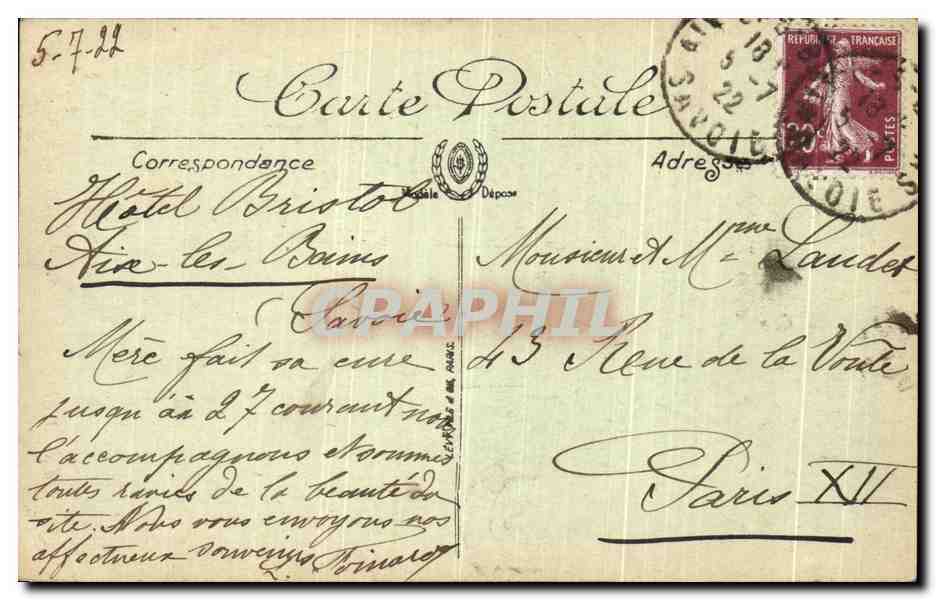 5-7-22
Carte Postale
Correspondance
Adresse
Modèle Déposé
REPUBLIQUE FRANÇAISE
POSTES
SAVOIE
18
5 -7
22
Hôtel Bristol
Aix-les-Bains
Savoie
Mère fait sa cure
jusqu'au 27 courant nous
l'accompagnons et sommes
toutes ravies de la beauté du
site. Nous vous envoyons nos
affectueux souvenirs
Monsieur et Mme Laudet
43 Rue de la Voûte
Paris XII
CPAPHIL